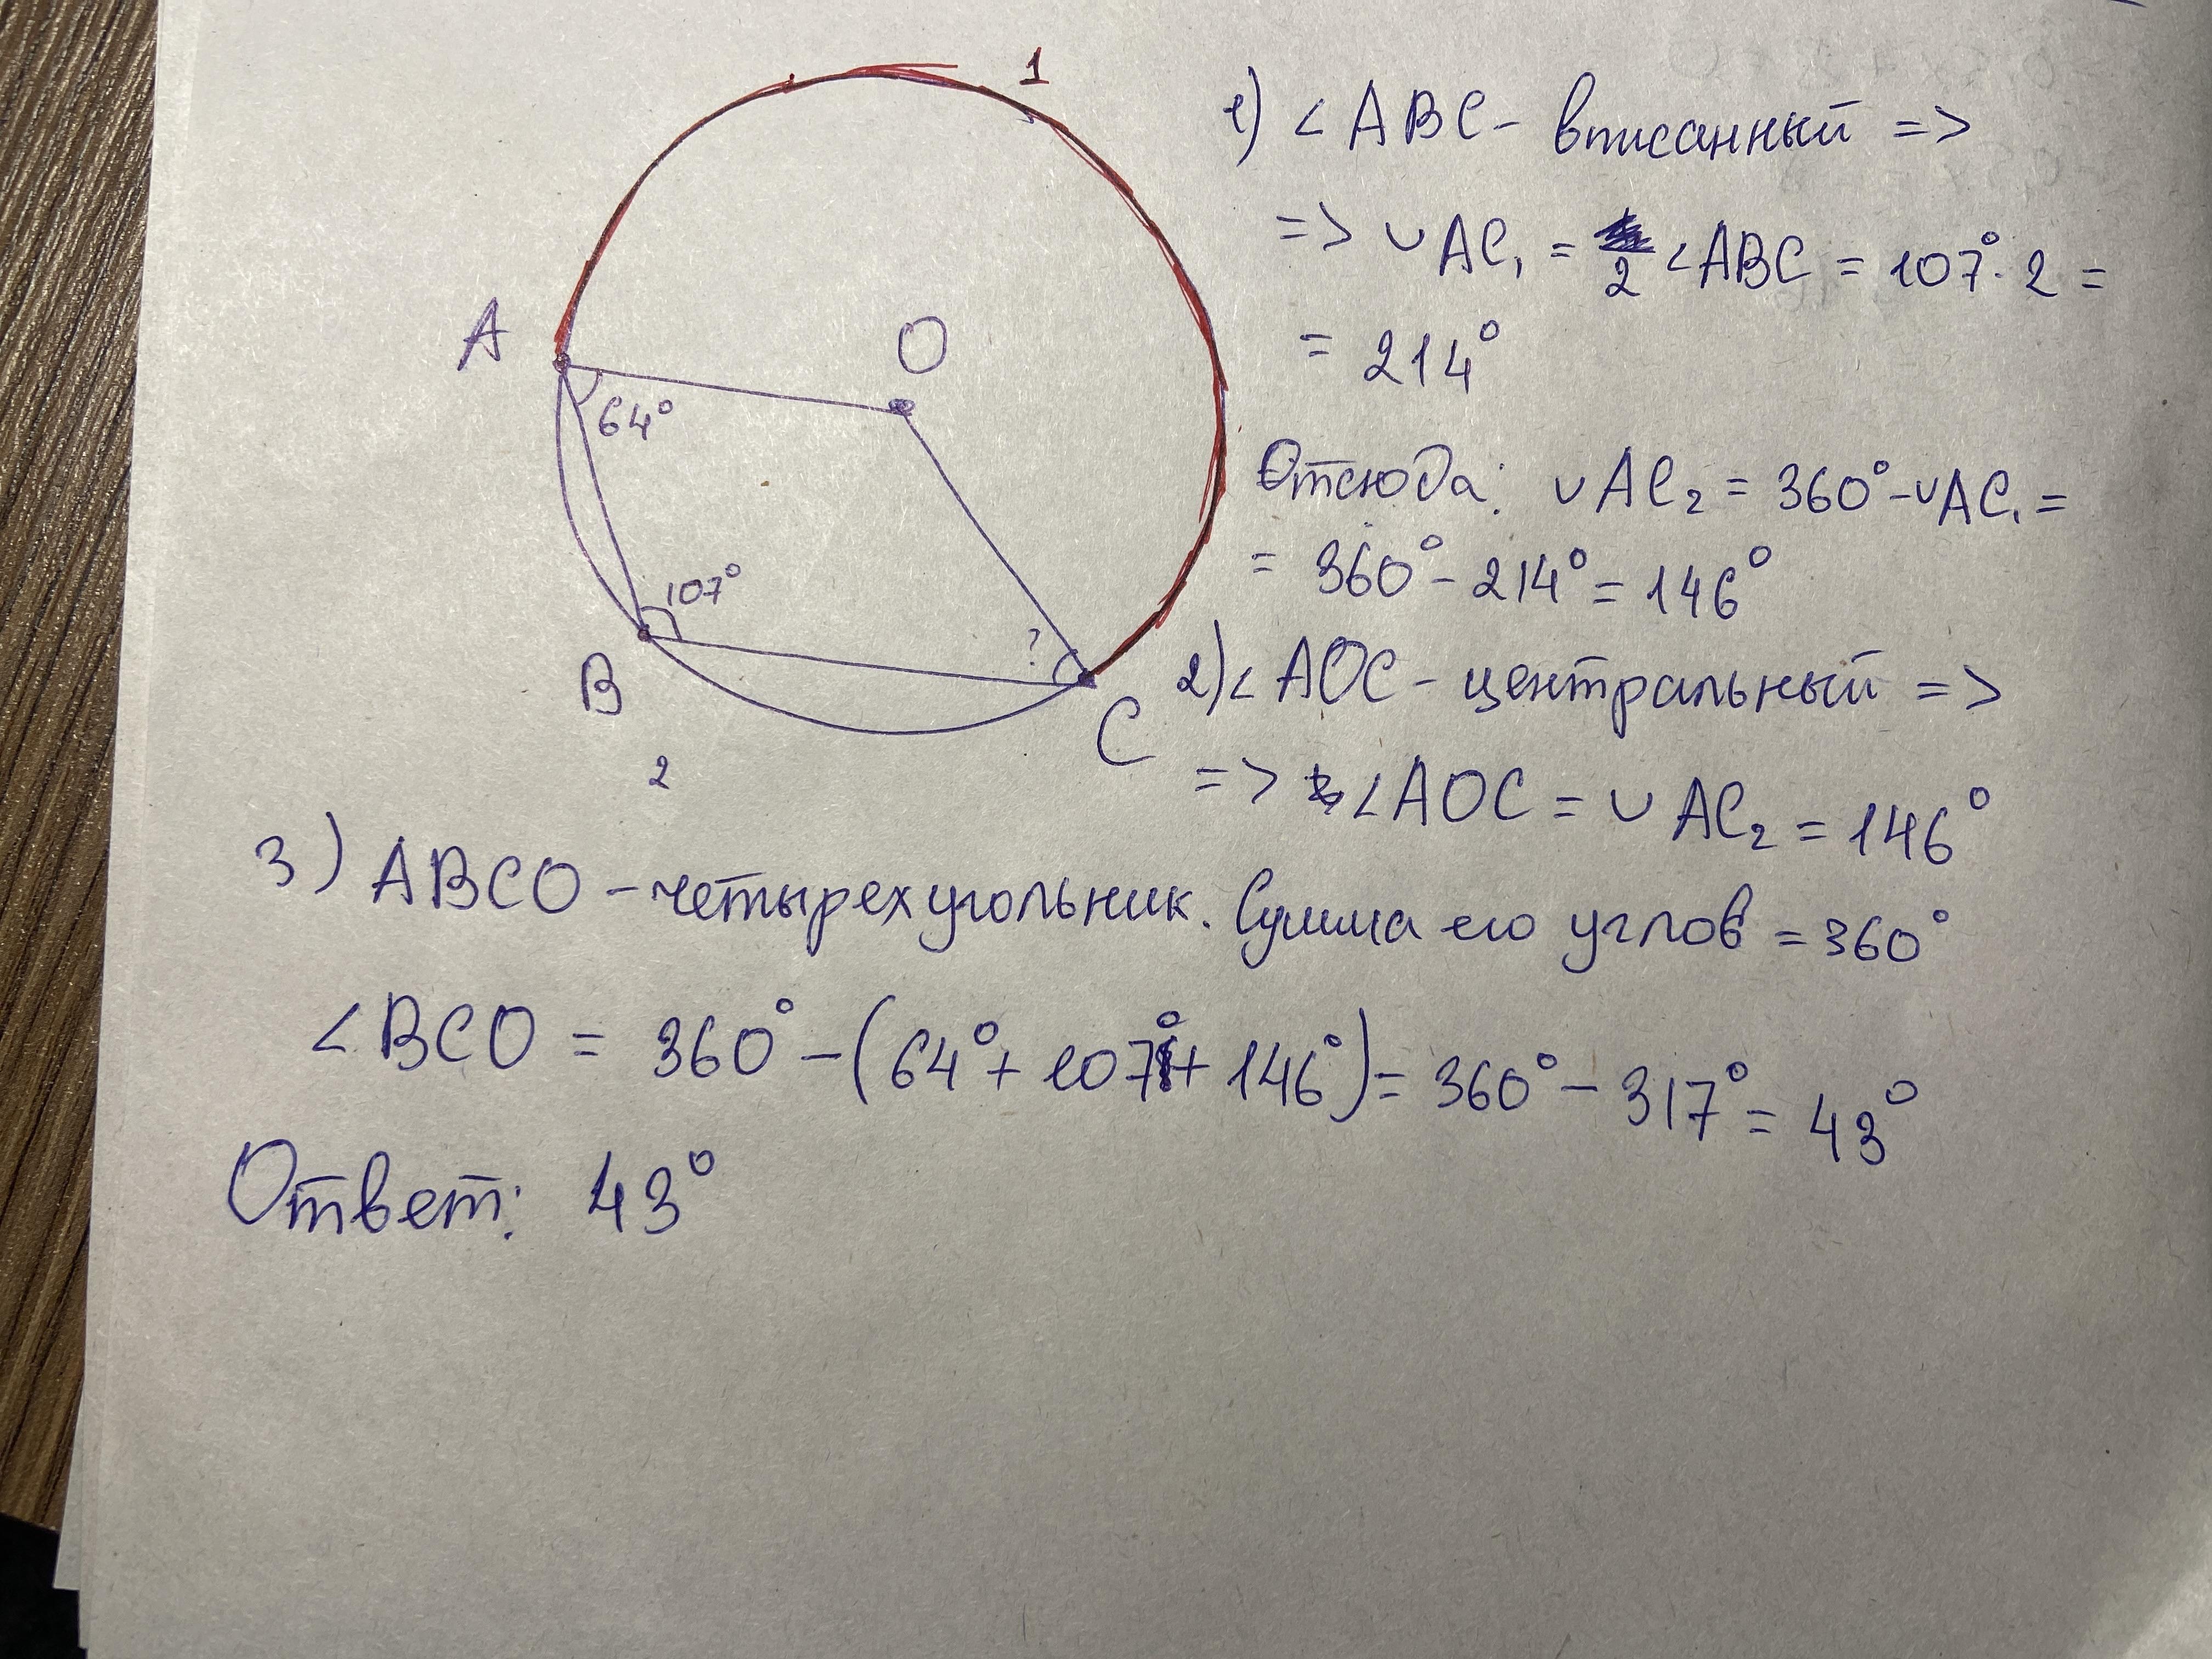 1
A
O
64°
107°
?
B
C
2
1) ∠ABC - вписанный =>
=> ∪AC₁ = 2∠ABC = 107°·2 =
= 214°
Отсюда: ∪AC₂ = 360° - ∪AC₁ =
= 360° - 214° = 146°
2) ∠AOC - центральный =>
=> ∠AOC = ∪AC₂ = 146°
3) ABCO - четырехугольник. Сумма его углов = 360°
∠BCO = 360° - (64° + 107° + 146°) = 360° - 317° = 43°
Ответ: 43°